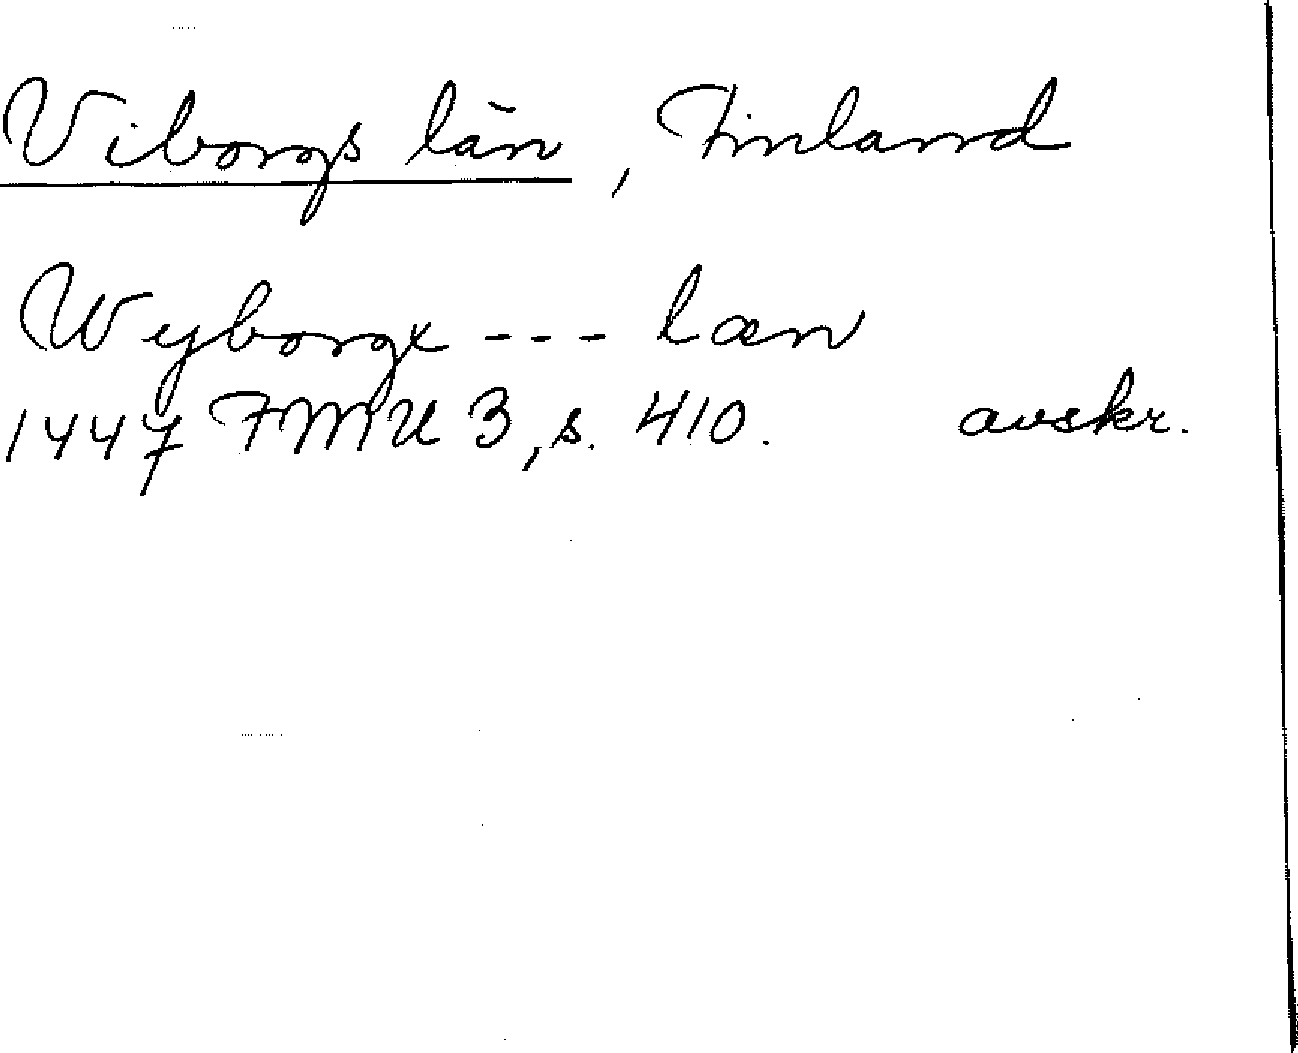 Viborgs län, Finland
Wyborgx --- læn
1447 FMU 3, s. 410. avskr.